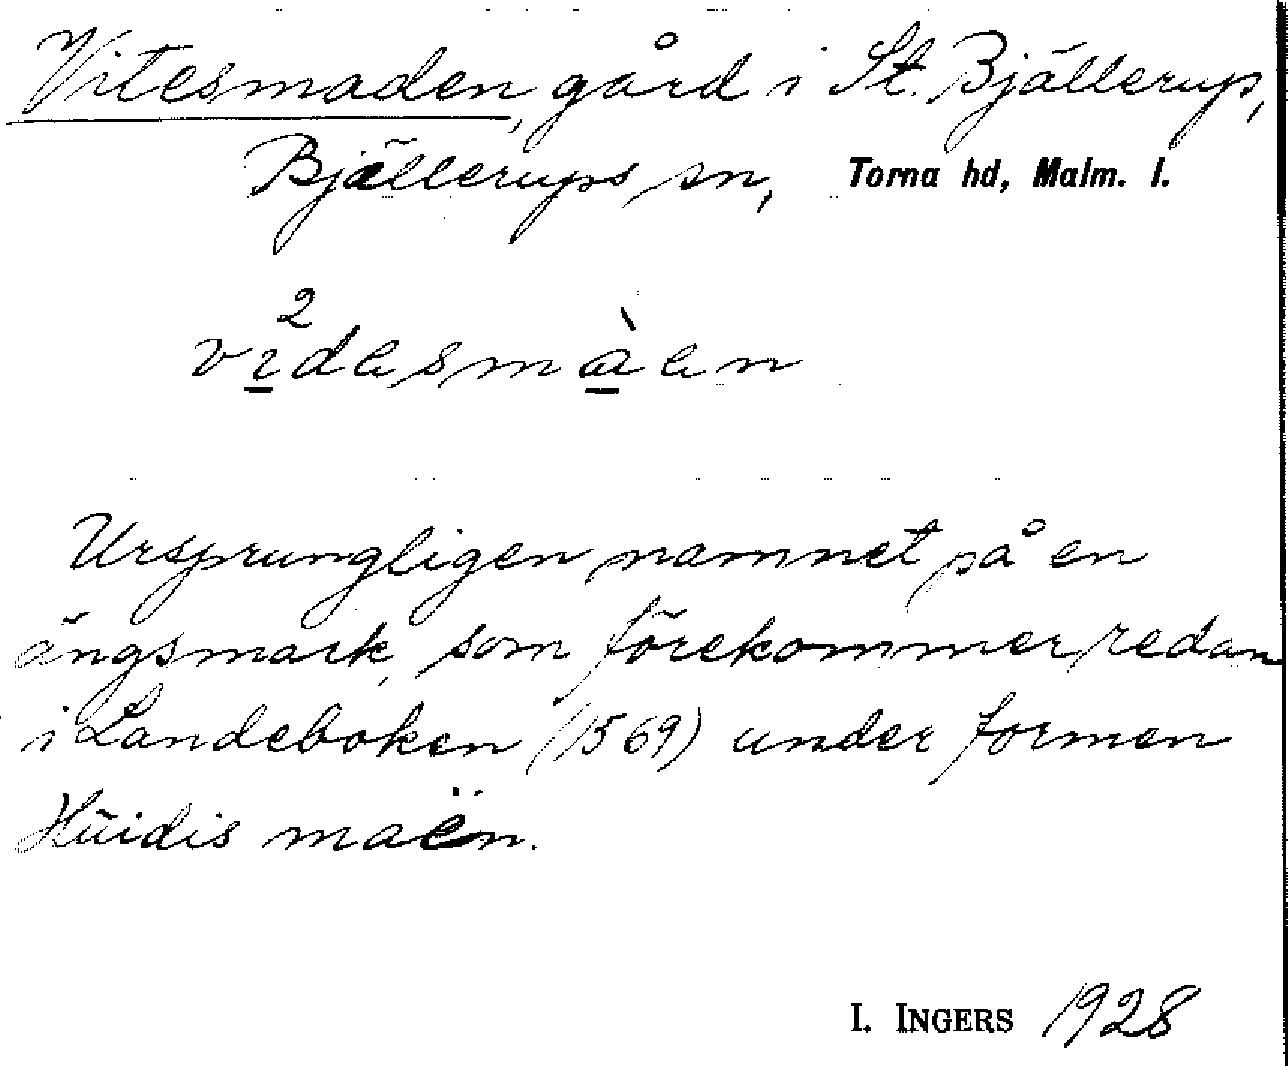 Vitesmaden, gård i St. Bjällerup,
Bjällerups sn, Torna hd, Malm. l.
2
videsmàen
Ursprungligen namnet på en
ängsmark, som förekommer redan
i Landeboken (1569) under formen
Hŭidis maën.
I. INGERS 1928